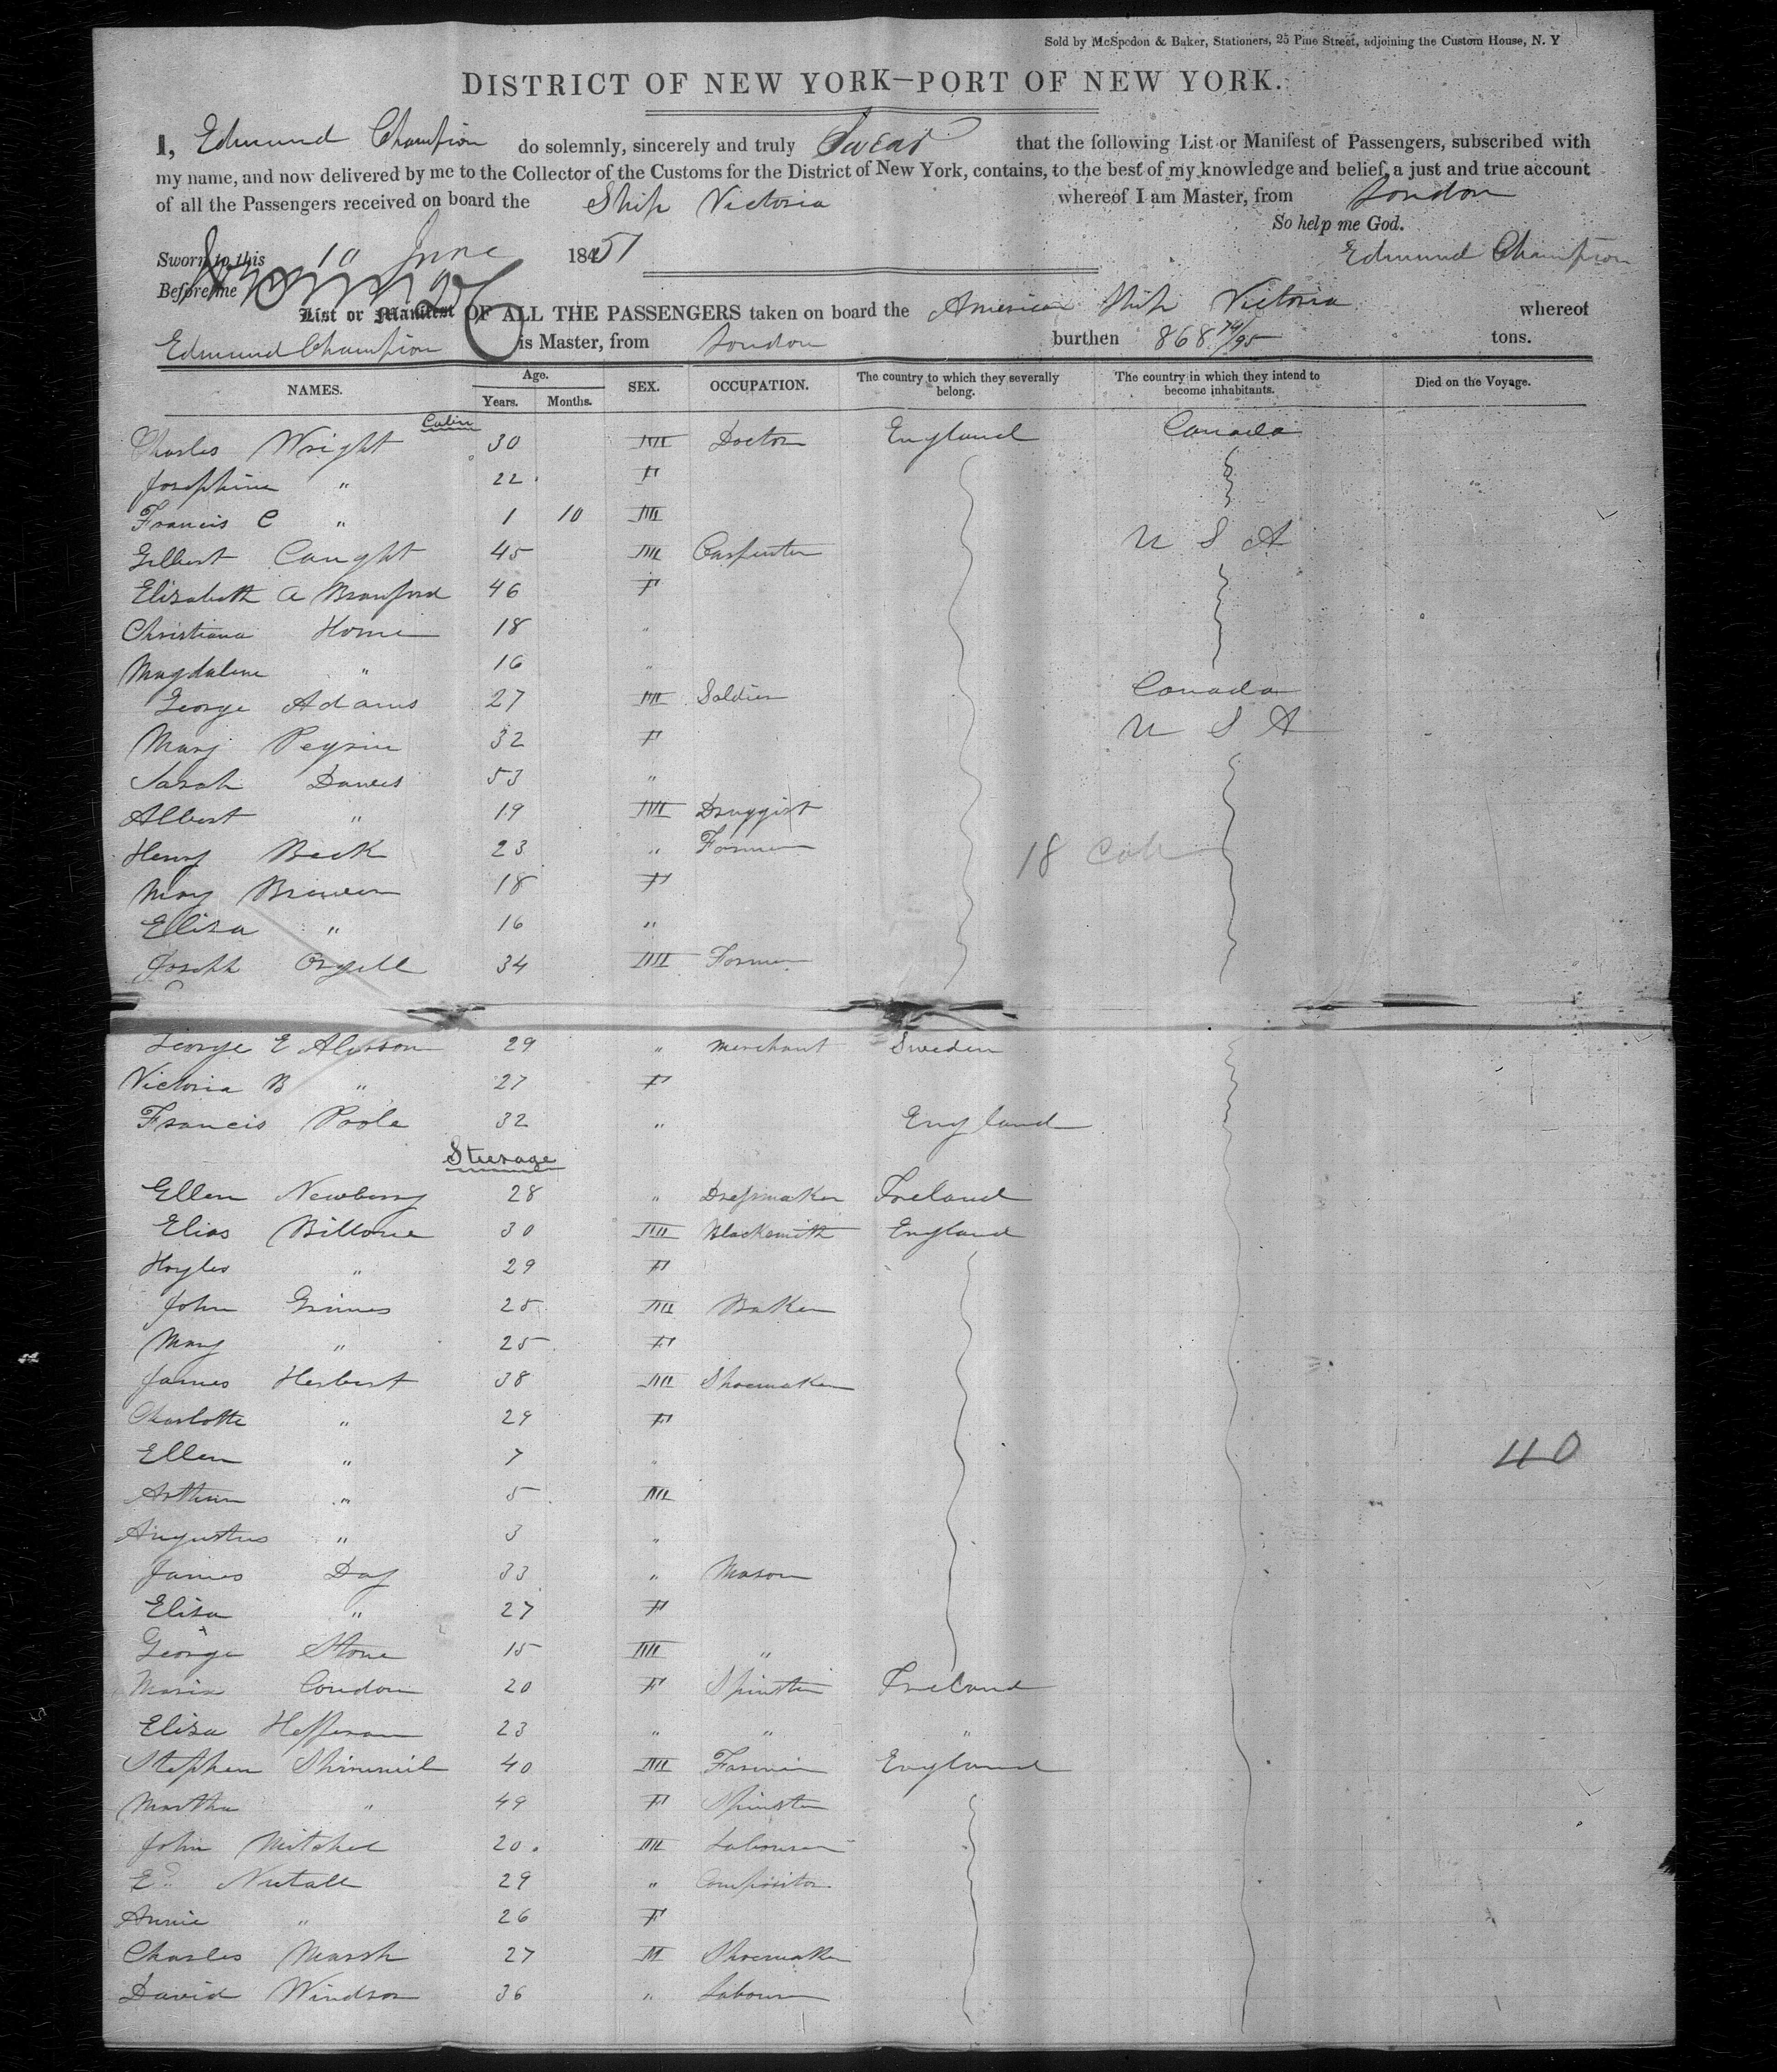 Sold by McSpedon & Baker, Stationers, 25 Pine Street, adjoining the Custom House, N. Y
DISTRICT OF NEW YORK—PORT OF NEW YORK.
I, Edmund Champion do solemnly, sincerely and truly Swear that the following List or Manifest of Passengers, subscribed with
my name, and now delivered by me to the Collector of the Customs for the District of New York, contains, to the best of my knowledge and belief, a just and true account
of all the Passengers received on board the Ship Victoria whereof I am Master, from London
So help me God.
Sworn to this 10 June 1851 Edmund Champion
Before me
List or Manifest OF ALL THE PASSENGERS taken on board the American Ship Victoria whereof
Edmund Champion is Master, from London burthen 868 74/95 tons.
NAMES. Age. Years. Months. SEX. OCCUPATION. The country to which they severally belong. The country in which they intend to become inhabitants. Died on the Voyage.
Cabin
Charles Wright 30 M Doctor England Canada
Josephine " 22 F
Francis C " 1 10 M
Gilbert Caught 45 M Carpenter U S A
Elizabeth A Branford 46 F
Christiana Horne 18 "
Magdalene " 16 "
George Adams 27 M Soldier Canada
Mary 32 F U S A
Sarah Dawes 53 "
Albert " 19 M Druggist
Henry Beck 23 " Farmer
18 Cab
May Brewer 18 F
Eliza " 16 "
Joseph Orgill 34 M Farmer
George E 29 " Merchant Sweden
Victoria B " 27 F
Francis Poole 32 " England
Steerage
Ellen Newberry 28 " Dressmaker Ireland
Elias 30 M Blacksmith England
" 29 F
John Grimes 25 M Baker
Mary " 25 F
James Herbert 38 M Shoemaker
Charlotte " 29 F
Ellen " 7 "
40
Arthur " 5 M
Augustus " 3 "
James Day 33 " Mason
Eliza " 27 F
George Stone 15 M "
Maria Condon 20 F Spinster Ireland
Eliza Heffernan 23 " " "
Stephen 40 M Farmer England
Martha " 49 F Spinster
John Mitchel 20 M Labourer
Nutall 29 " Compositor
Annie " 26 F
Charles Marsh 27 M Shoemaker
David Windsor 36 " Labourer